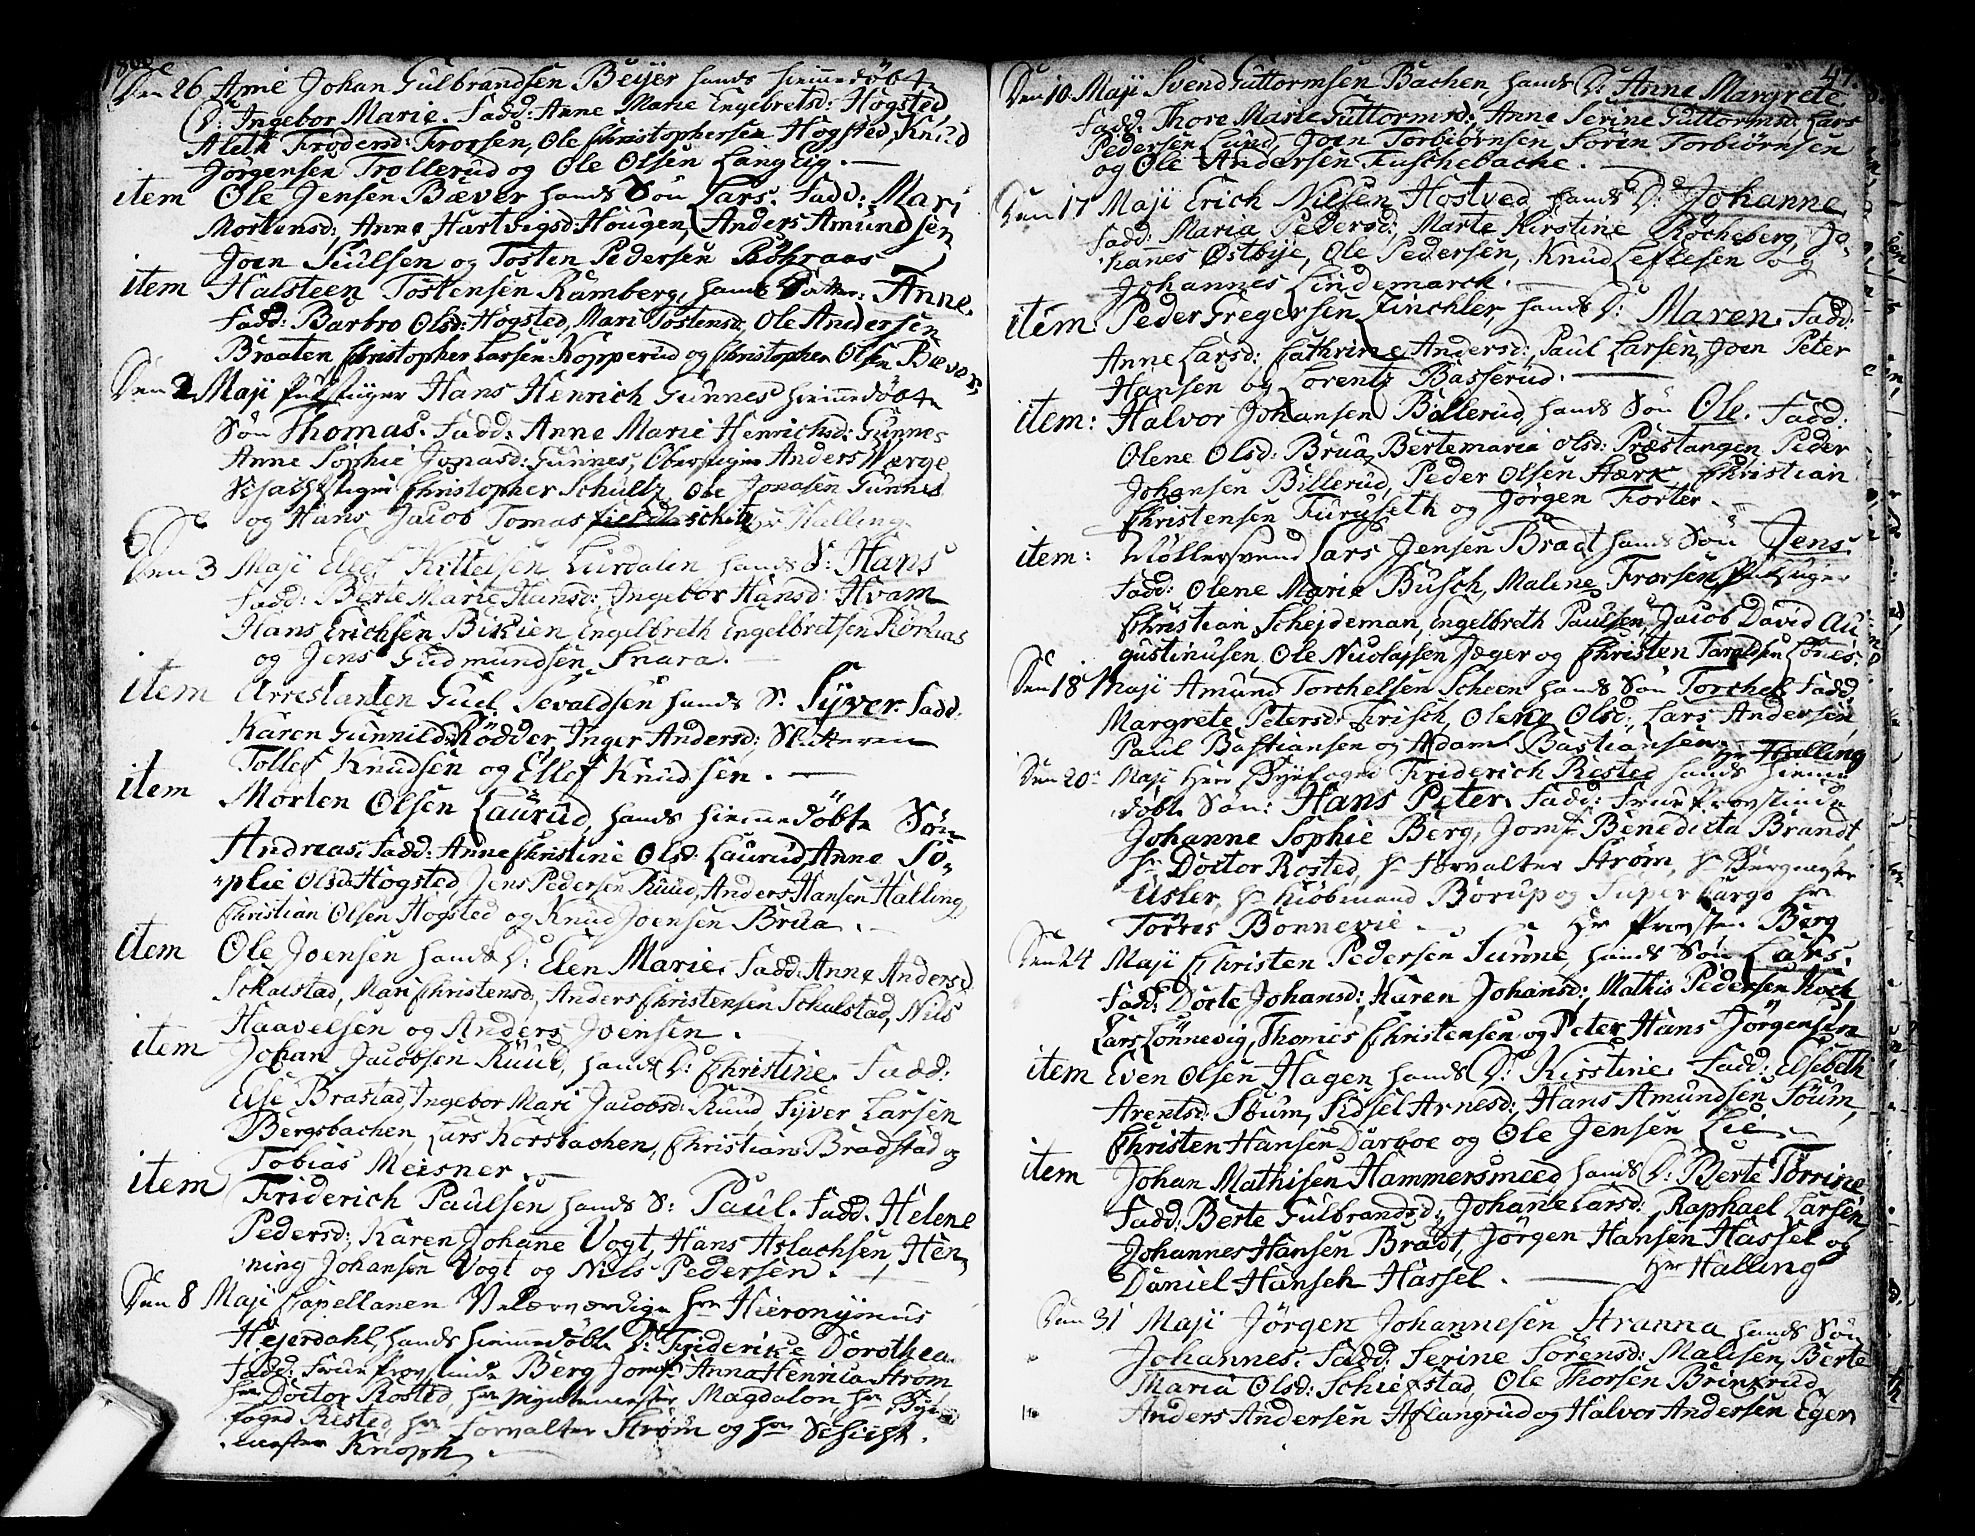 1800
Den 26 Apric Johan Gulbrandsen Beijer hands hiemmedøbte
D: Ingebor Marie. Fadd: Anne Marie Engebretsd: Høgsted
Aleth Frodensd: Frorsen, Ole Christophersen Høgsted, Knud
Jørgensen Trollerud og Ole Olsen Lang Eig.
item Ole Jensen Bæver hands Søn Lars. Fadd: Mari
Mortensd; Anne Hartvigsd: Hougen, Anders Amundsen
Joen Siulsen og Tosten Pedersen Røkraas
item Halsteen Tostensen Ramberg, hands Datter: Anne.
Fadd: Barbro Olsd: Høgsted, Mari Tostensd, Ole Andersen
Braaten, Christopher Larsen Kopperud og Christopher Olsen Bæver.
Den 2 Maji Pukstiger Hans Henrich Gunnes hiemmedøbte
Søn Thomas. Fadd: Anne Marie Henrichsd: Gunnes
Anne Sophie Jonasd: Gunnes, Oberstiger Anders Værge
Schachtstiger Christopher Schultz, Ole Jonasen Gunnes
og Hans Jacob Tomas Hr Halling.
Den 3 Maji Ellef Kittelsen Lurdalen hands S: Hans
Fadd: Berte Marte Hansd:, Ingebor Hansd: Hvam
Hans Erichsen Bikien, Engelbreth Engelbretsen Røraas
og Jens Gudmundsen Snara.
item Arrestanten Guul Sevaldsen hands S. Syver. Fadd.
Karen Gunnildsd Rødder, Inger Andersd; Slutteren
Tollef Knudsen og Ellef Knudsen.
item Morten Olsen Laurud, hands hiemmedøbte Søn
Andreas. Fadd: Anne Christine Olsd: Laurud, Anne So-
phie Olsd: Høgsted, Jens Pedersen Ruud, Anders Hansen Halling,
Christian Olsen Høgsted og Knud Joensen Brua.
item Ole Joensen hands D: Elen Marie. Fadd: Anne Andersd
Skalstad, Mari Christensd, Anders Christensen Skalstad, Nils
Haavelsen og Anders Joensen.
item Johan Jacobsen Ruud, hands D: Christine. Fadd:
Else Brastad, Ingebor Mari Jacobsd: Ruud, Syver Larsen
Bergsbachen, Lars Korsbachen, Christian Bradstad og
Tobias Meisner.
item Friderich Paulsen hands S: Paul. Fadd. Helene
Pedersd; Karen Johane Vogt, Hans Aslachsen, Hen-
ning Johansen Vogt og Nils Pedersen.
Den 8 Maji Capellanen Velærværdige Hr Hieronymus
Hejerdahl, hands hiemmedøbte D: Friderikke Dorothea
Fadd: Frue Provstinde Berg Jomf: Anna Henrica Strøm
Hr Doctor Rosted, Hr Myntmester Magdalon Hr Bye
foged Rested Hr Forvalter Strøm og Hr Schicht-
mester Knoph.
47.
Den 10. Maji Svend Guttormsen Bachen, hands D: Anne Margrete
Fadd: Thore Marie Guttormsd:, Anne Serine Guttormsd: Lars
Pedersen Lund, Joen Torbiørnsen, Søren Torbiørnsen
og Ole Andersen Fuschebache.
Den 17 Maji Erich Nilsen Hostved hands D: Johanne
Fadd: Maria Pedersd:, Marte Kirstine Rocheberg, Jo-
hanes Østbye, Ole Pedersen, Knud Leflesen og
Johannes Lindemarck.
item: Peder Gregersen Finchler, hands D: Maren. Fadd:
Anne Larsd:, Cathrine Andersd:, Paul Larsen, Joen Peter
Hansen og Lorentz Basserud.
item: Halvor Johansen Billerud hands Søn Ole. Fadd:
Olene Olsd: Brua, Bertemaria Olsd: Præstangen, Peder
Johansen Billerud, Peder Olsen Hærk, Christian
Christensen Furuseth og Jørgen Forter.
item: Møllersvend Lars Jensen Bradt hands Søn Jens
Fadd: Olene Maria Busch, Malene Frorsen, Pukstiger
Christian Schejdeman, Engelbreth Paulsen, Jacob David Au
gustinusen, Ole Nicolajsen Jæger og Christen Taraldsen Lønes:
Den 18 Maji Amund Torchelsen Scheen hands Søn Torchel Fadd.
Margrete Petersd: Frisch, Olene Olsd:, Lars Andersen
Paul Bastiansen og Adam Bastiansen. Hr Halling
Den 20 Maji Herr Byefoged Friderich Rested hands hiemme
døbte Søn: Hans Peter. Fadd: Frue Provstinde
Johanne Sophie Berg, Jomf: Benedicta Brandt
Hr Doctor Rosted, Hr Forvalter Strøm, Hr Bergmester
Usler, Hr Kiøbmand Borup og Super Cargo Hr
Torres Bonnevie Hr Provsten Berg
Den 24 Maji Christen Pedersen Sunne, hands Søn Lars.
Fadd: Dorte Johansd:, Karen Johansd:, Mathis Pedersen Kock
Lars Lønnevig, Thomes Christensen og Peter Hans Jørgensen
item Even Olsen Hagen hands D: Kirstine. Fadd: Elsebeth
Arentsd: Soum, Sidsel Arnesd:, Hans Amundsen Soum,
Christen Hansen Darboe og Ole Jensen Lie.
item Johan Mathisen Hammersmeed hands D: Berte Torrine
Fadd: Berte Gulbrandsd:, Johane Larsd:, Raphael Larsen,
Johannes Hansen Bradt, Jørgen Hansen Hassel og
Daniel Hansen Hassel. Herr Halling
Den 31 Maji Jørgen Johannesen Stranna hands Søn
Johannes. Fadd: Serine Sørensd: Malisen, Berte
Maria Olsd: Schiefstad, Ole Thorsen Brinkrud,
Anders Andersen Aflangrud og Halvor Andersen Eger